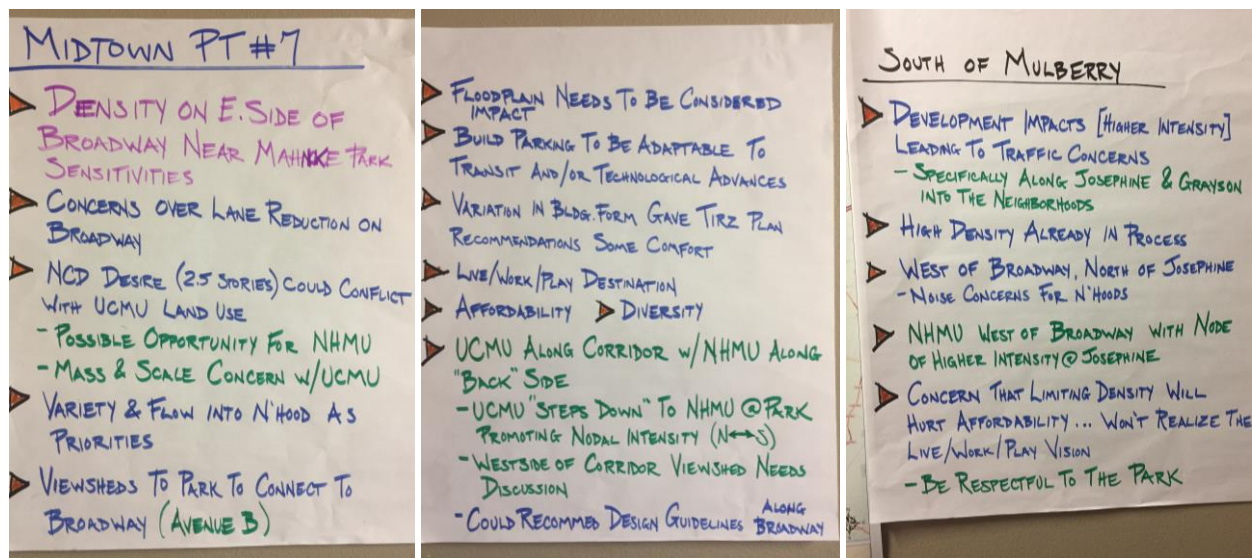 MIDTOWN PT #7
DENSITY ON E. SIDE OF
BROADWAY NEAR MAHNKE PARK
SENSITIVITIES
CONCERNS OVER LANE REDUCTION ON
BROADWAY
NCD DESIRE (2.5 STORIES) COULD CONFLICT
WITH UCMU LAND USE
- POSSIBLE OPPORTUNITY FOR NHMU
- MASS & SCALE CONCERN W/UCMU
VARIETY & FLOW INTO N'HOOD AS
PRIORITIES
VIEWSHEDS TO PARK TO CONNECT TO
BROADWAY (AVENUE B)
FLOODPLAIN NEEDS TO BE CONSIDERED
IMPACT
BUILD PARKING TO BE ADAPTABLE TO
TRANSIT AND/OR TECHNOLOGICAL ADVANCES
VARIATION IN BLDG. FORM GAVE TIRZ PLAN
RECOMMENDATIONS SOME COMFORT
LIVE/WORK/PLAY DESTINATION
AFFORDABILITY DIVERSITY
UCMU ALONG CORRIDOR W/NHMU ALONG
"BACK" SIDE
- UCMU "STEPS DOWN" TO NHMU @ PARK
PROMOTING NODAL INTENSITY (N↔S)
- WESTSIDE OF CORRIDOR VIEWSHED NEEDS
DISCUSSION
- COULD RECOMMED DESIGN GUIDELINES ALONG
BROADWAY
SOUTH OF MULBERRY
DEVELOPMENT IMPACTS [HIGHER INTENSITY]
LEADING TO TRAFFIC CONCERNS
- SPECIFICALLY ALONG JOSEPHINE & GRAYSON
INTO THE NEIGHBORHOODS
HIGH DENSITY ALREADY IN PROCESS
WEST OF BROADWAY, NORTH OF JOSEPHINE
- NOISE CONCERNS FOR N'HOODS
NHMU WEST OF BROADWAY WITH NODE
OF HIGHER INTENSITY @ JOSEPHINE
CONCERN THAT LIMITING DENSITY WILL
HURT AFFORDABILITY... WON'T REALIZE THE
LIVE/WORK/PLAY VISION
- BE RESPECTFUL TO THE PARK